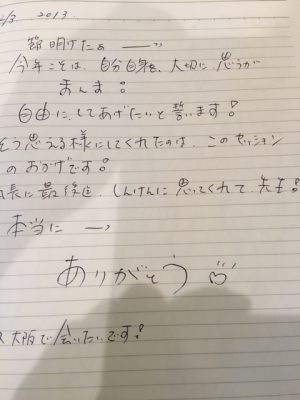 /3. 2013.
節明けたぁ →
今年こそは、自分自身を、大切に 思うが
まんま!
自由に、してあげたいと誓います!
そう思える様にしてくれたのは、このセッション
のおかげです!
に最後迄、しんけんに思ってくれて、先生!
本当に →
ありがとう
大阪で会いたいです!